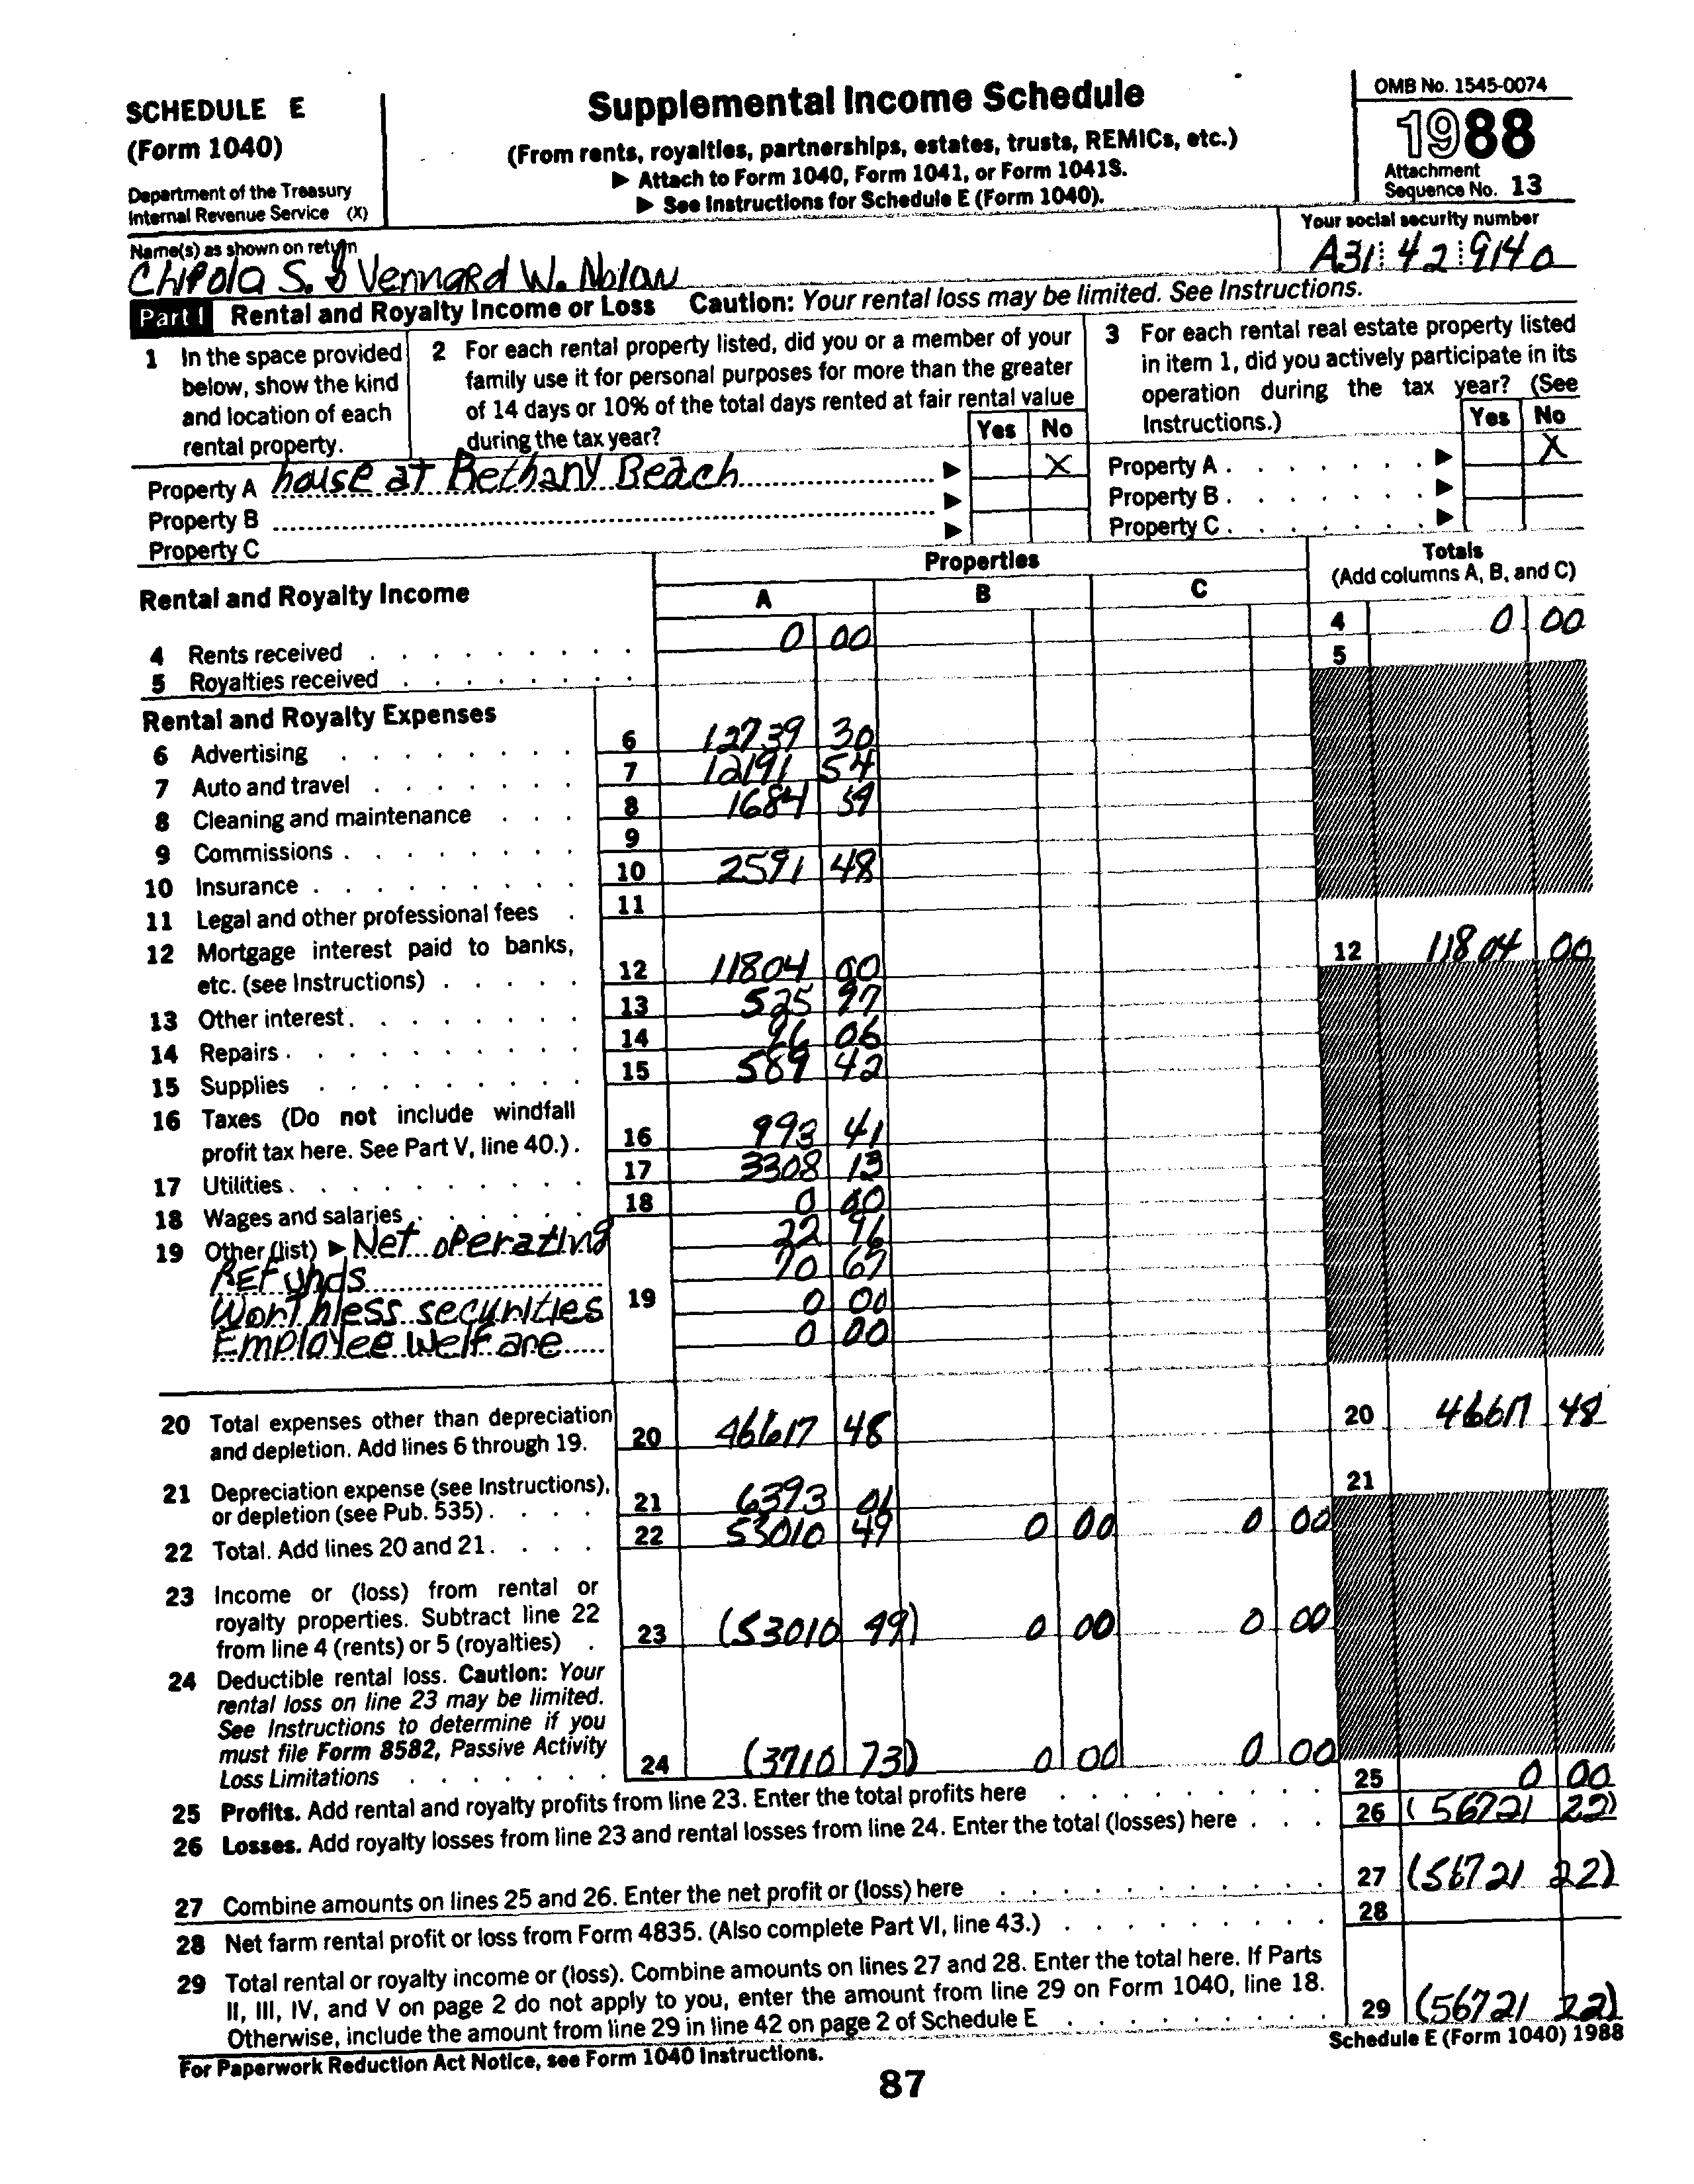 SCHEDULE E
(Form 1040)
Department of the Treasury
Internal Revenue Service (X)
Supplemental Income Schedule
(From rents, royalties, partnerships, estates, trusts, REMICs, etc.)
▶ Attach to Form 1040, Form 1041, or Form 1041S.
▶ See Instructions for Schedule E (Form 1040).
OMB No. 1545-0074
1988
Attachment
Sequence No. 13
Name(s) as shown on return
Chipola S. & Vennard W. Nolan
Your social security number
A31 42 9140
Part I Rental and Royalty Income or Loss Caution: Your rental loss may be limited. See Instructions.
1 In the space provided
below, show the kind
and location of each
rental property.
2 For each rental property listed, did you or a member of your
family use it for personal purposes for more than the greater
of 14 days or 10% of the total days rented at fair rental value
during the tax year?
Yes No
3 For each rental real estate property listed
in item 1, did you actively participate in its
operation during the tax year? (See
Instructions.)
Yes No
Property A house at Bethany Beach ▶ X
Property B ▶
Property C ▶
Property A . . . . . . . ▶ X
Property B . . . . . . . ▶
Property C . . . . . . . ▶
Rental and Royalty Income
Properties
A B C
Totals
(Add columns A, B, and C)
4 Rents received 0 00 4 0 00
5 Royalties received 5
Rental and Royalty Expenses
6 Advertising 6 12739 30
7 Auto and travel 7 12191 54
8 Cleaning and maintenance 8 1684 59
9 Commissions 9
10 Insurance 10 2591 48
11 Legal and other professional fees 11
12 Mortgage interest paid to banks,
etc. (see Instructions) 12 11804 00 12 11804 00
13 Other interest 13 525 97
14 Repairs 14 96 06
15 Supplies 15 589 42
16 Taxes (Do not include windfall
profit tax here. See Part V, line 40.) 16 993 41
17 Utilities 17 3308 13
18 Wages and salaries 18 0 00
19 Other (list) ▶ Net operating 22 96
Refunds 70 67
Worthless securities 19 0 00
Employee welfare 0 00
20 Total expenses other than depreciation
and depletion. Add lines 6 through 19. 20 46617 48 20 46617 48
21 Depreciation expense (see Instructions),
or depletion (see Pub. 535) 21 6393 01 21
22 Total. Add lines 20 and 21 22 53010 49 0 00 0 00
23 Income or (loss) from rental or
royalty properties. Subtract line 22
from line 4 (rents) or 5 (royalties) 23 (53010 49) 0 00 0 00
24 Deductible rental loss. Caution: Your
rental loss on line 23 may be limited.
See Instructions to determine if you
must file Form 8582, Passive Activity
Loss Limitations 24 (3710 73) 0 00 0 00
25 Profits. Add rental and royalty profits from line 23. Enter the total profits here 25 0 00
26 Losses. Add royalty losses from line 23 and rental losses from line 24. Enter the total (losses) here 26 (56721 22)
27 Combine amounts on lines 25 and 26. Enter the net profit or (loss) here 27 (56721 22)
28 Net farm rental profit or loss from Form 4835. (Also complete Part VI, line 43.) 28
29 Total rental or royalty income or (loss). Combine amounts on lines 27 and 28. Enter the total here. If Parts
II, III, IV, and V on page 2 do not apply to you, enter the amount from line 29 on Form 1040, line 18.
Otherwise, include the amount from line 29 in line 42 on page 2 of Schedule E 29 (56721 22)
For Paperwork Reduction Act Notice, see Form 1040 Instructions.
Schedule E (Form 1040) 1988
87